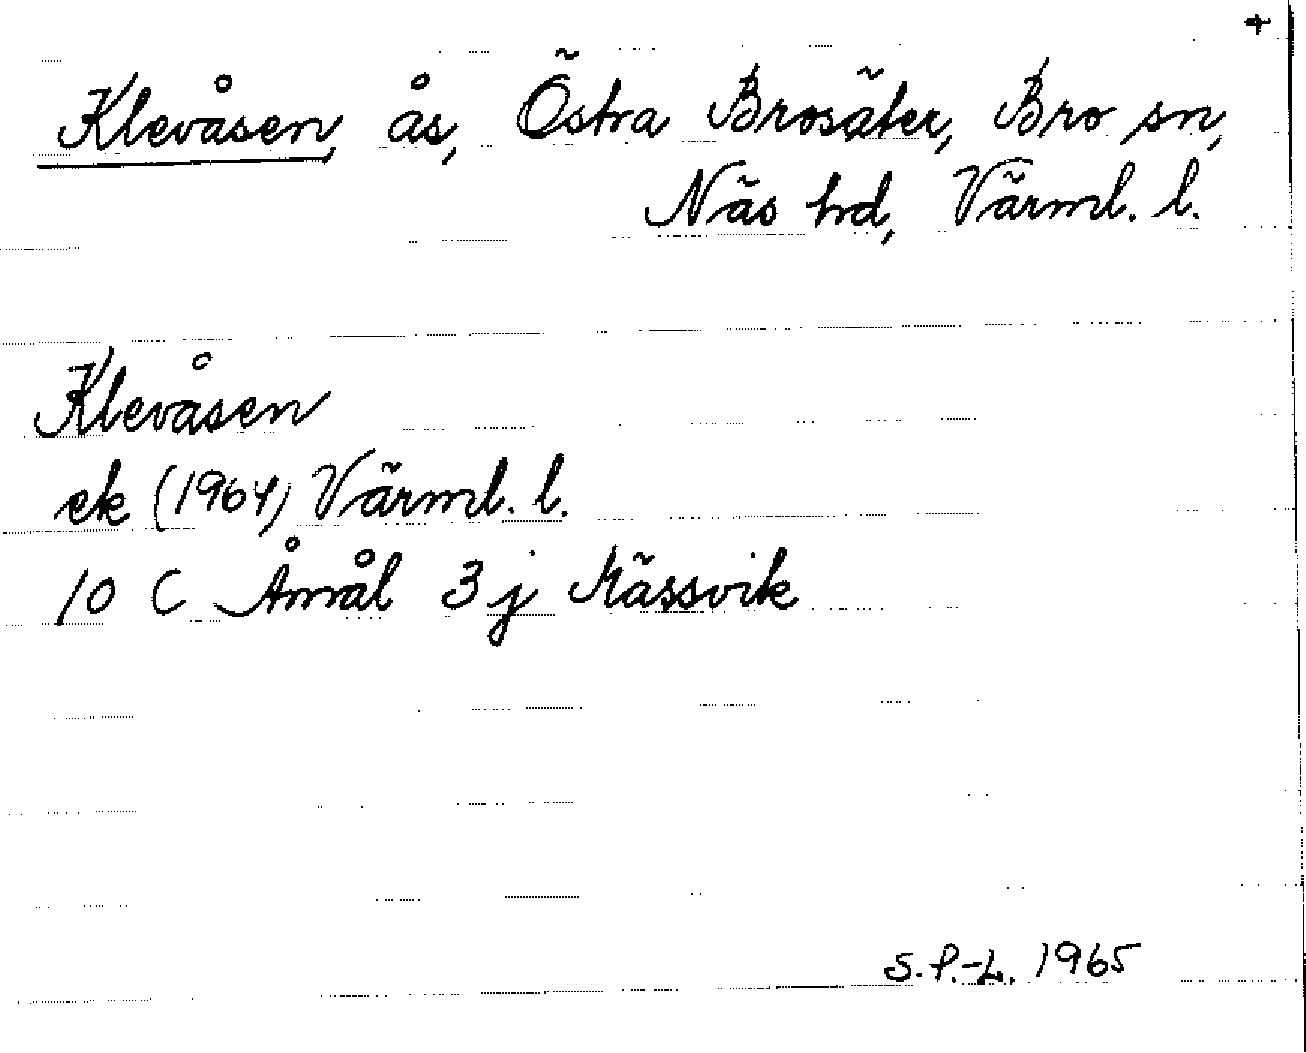 +
Klevåsen, ås, Östra Brosäter, Bro sn,
Näs hd, Värml. l.
Klevåsen
ek (1964) Värml. l.
10 C Åmål 3 j Mässvik
S.P.-L. 1965